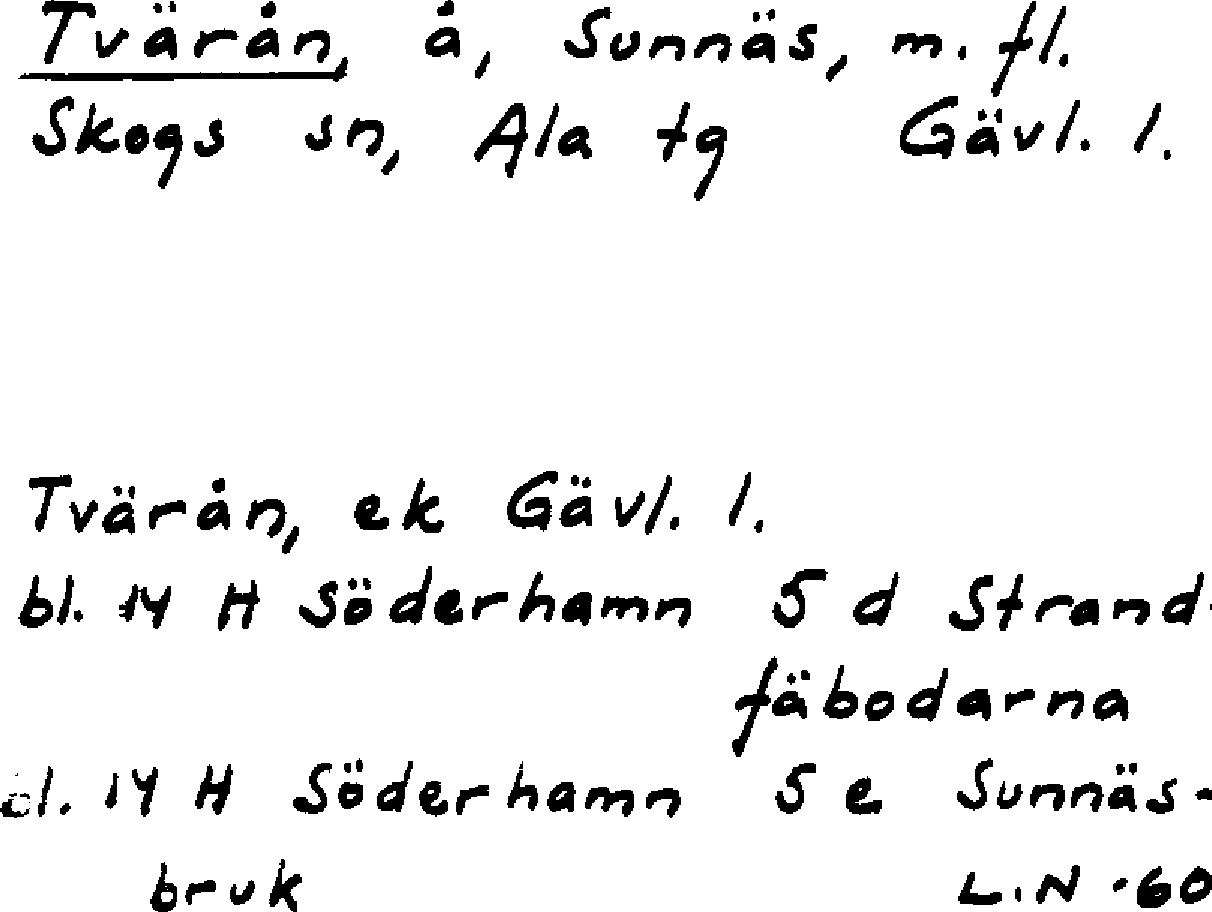 Tvärån, å, Sunnäs, m. fl.
Skogs sn, Ala tg Gävl. l.
Tvärån, ek Gävl. l.
bl. 14 H Söderhamn 5 d Strand-
fäbodarna
bl. 14 H Söderhamn 5 e Sunnäs-
bruk L.N -60